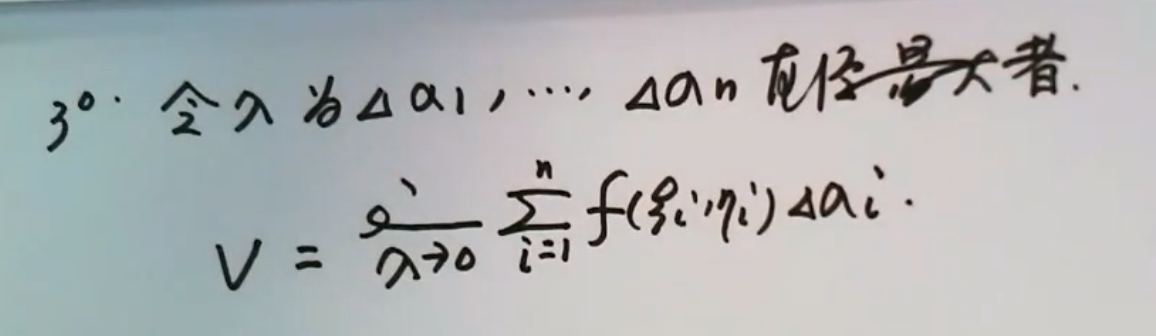 3°. 令λ为Δa₁,…,Δaₙ直径最大者.
V = lim_{λ→0} Σ_{i=1}^{n} f(ξᵢ,ηᵢ)Δaᵢ.